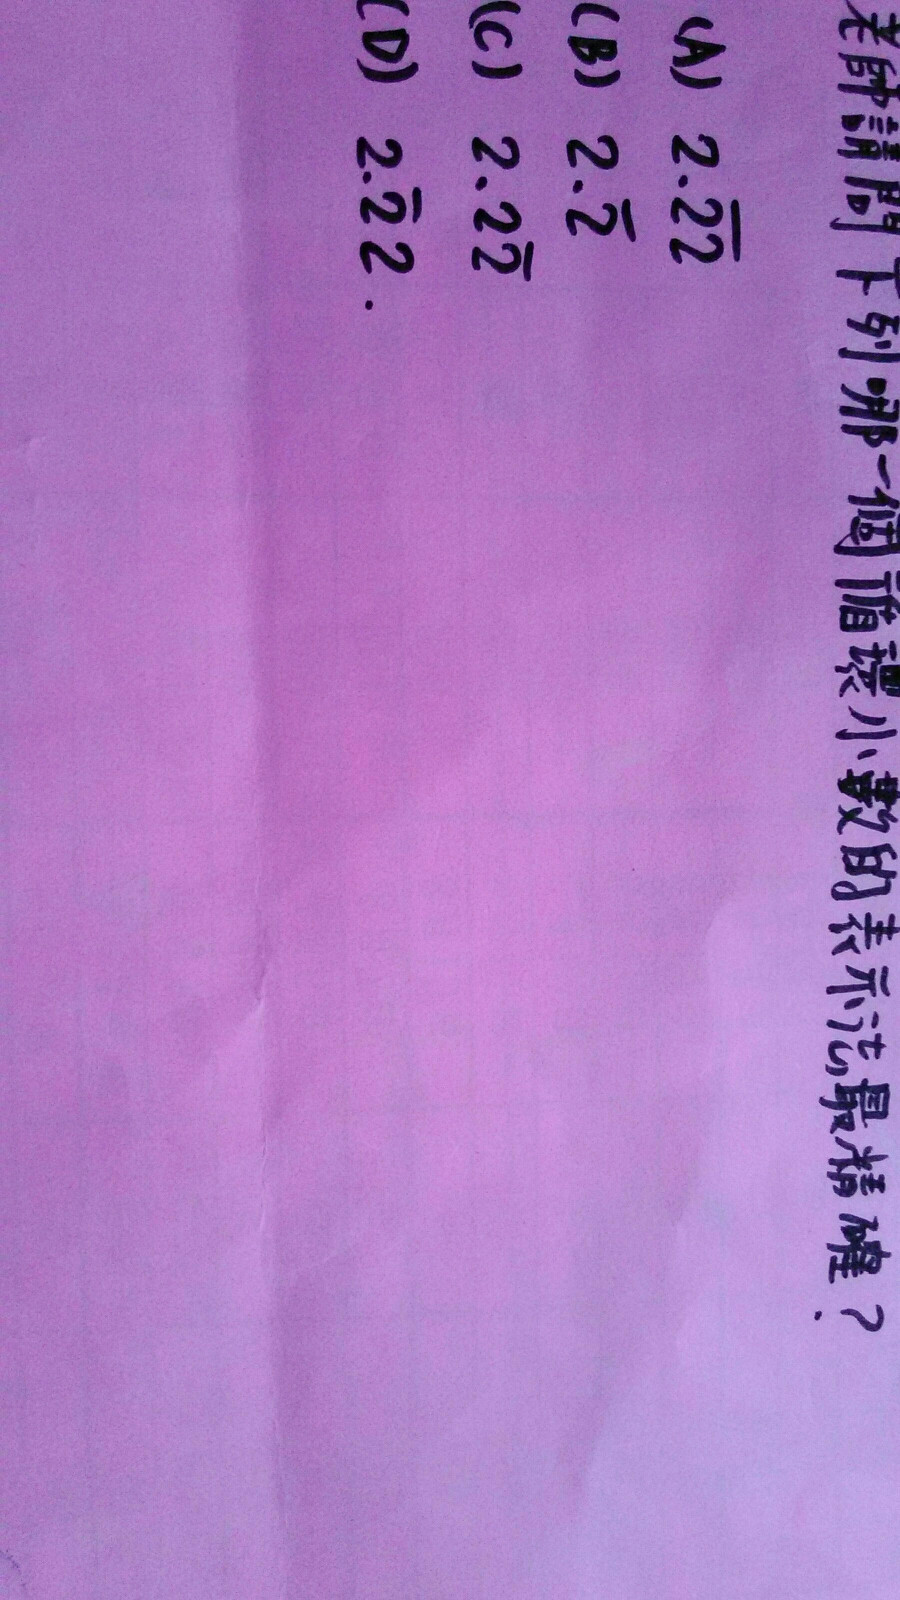 老師請問下列哪一個循環小數的表示法最精確?
(A) 2.2̅2̅
(B) 2.2̅
(C) 2.22̅
(D) 2.2̅2.